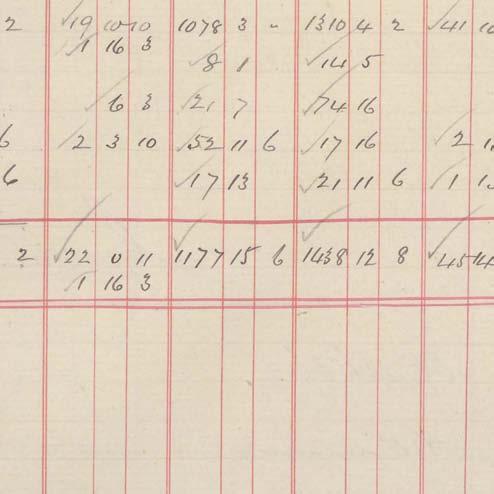 2 19 10 10 1078 3 - 1310 4 2 41 10
1 16 3
8 1 14 5
6 3 21 7 74 16
6 2 3 10 52 11 6 17 16 2
6 17 13 21 11 6 1
2 22 0 11 1177 15 6 1438 12 8 45 14
1 16 3